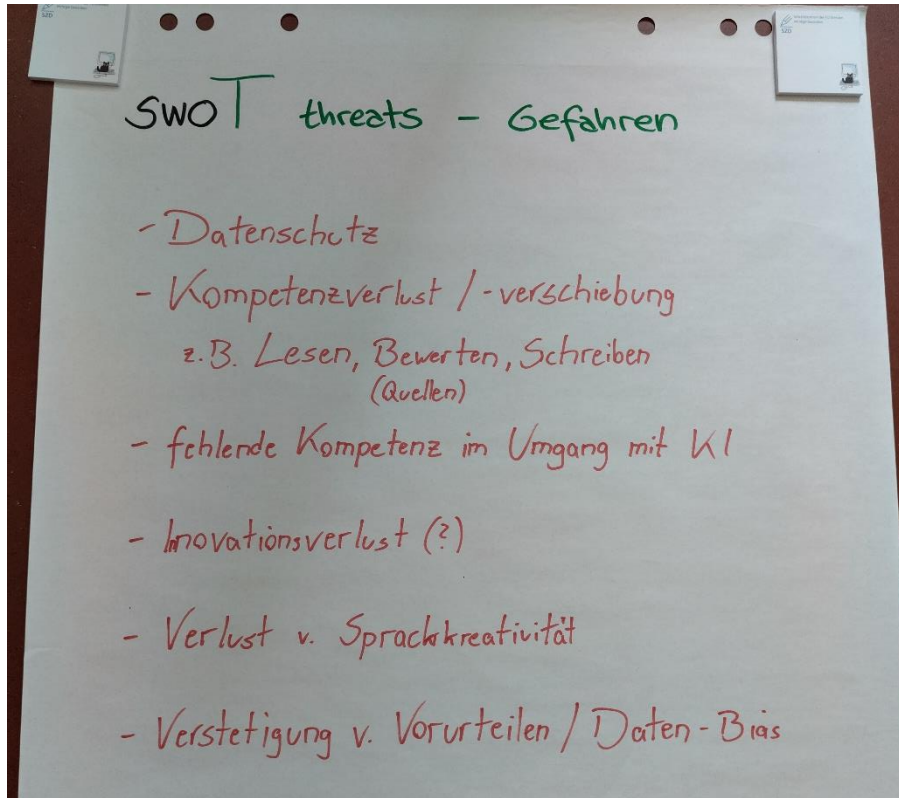 SWOT threats - Gefahren
- Datenschutz
- Kompetenzverlust / -verschiebung
z.B. Lesen, Bewerten, Schreiben
(Quellen)
- fehlende Kompetenz im Umgang mit KI
- Innovationsverlust (?)
- Verlust v. Sprachkreativität
- Verstetigung v. Vorurteilen / Daten-Bias
SZD
SZD